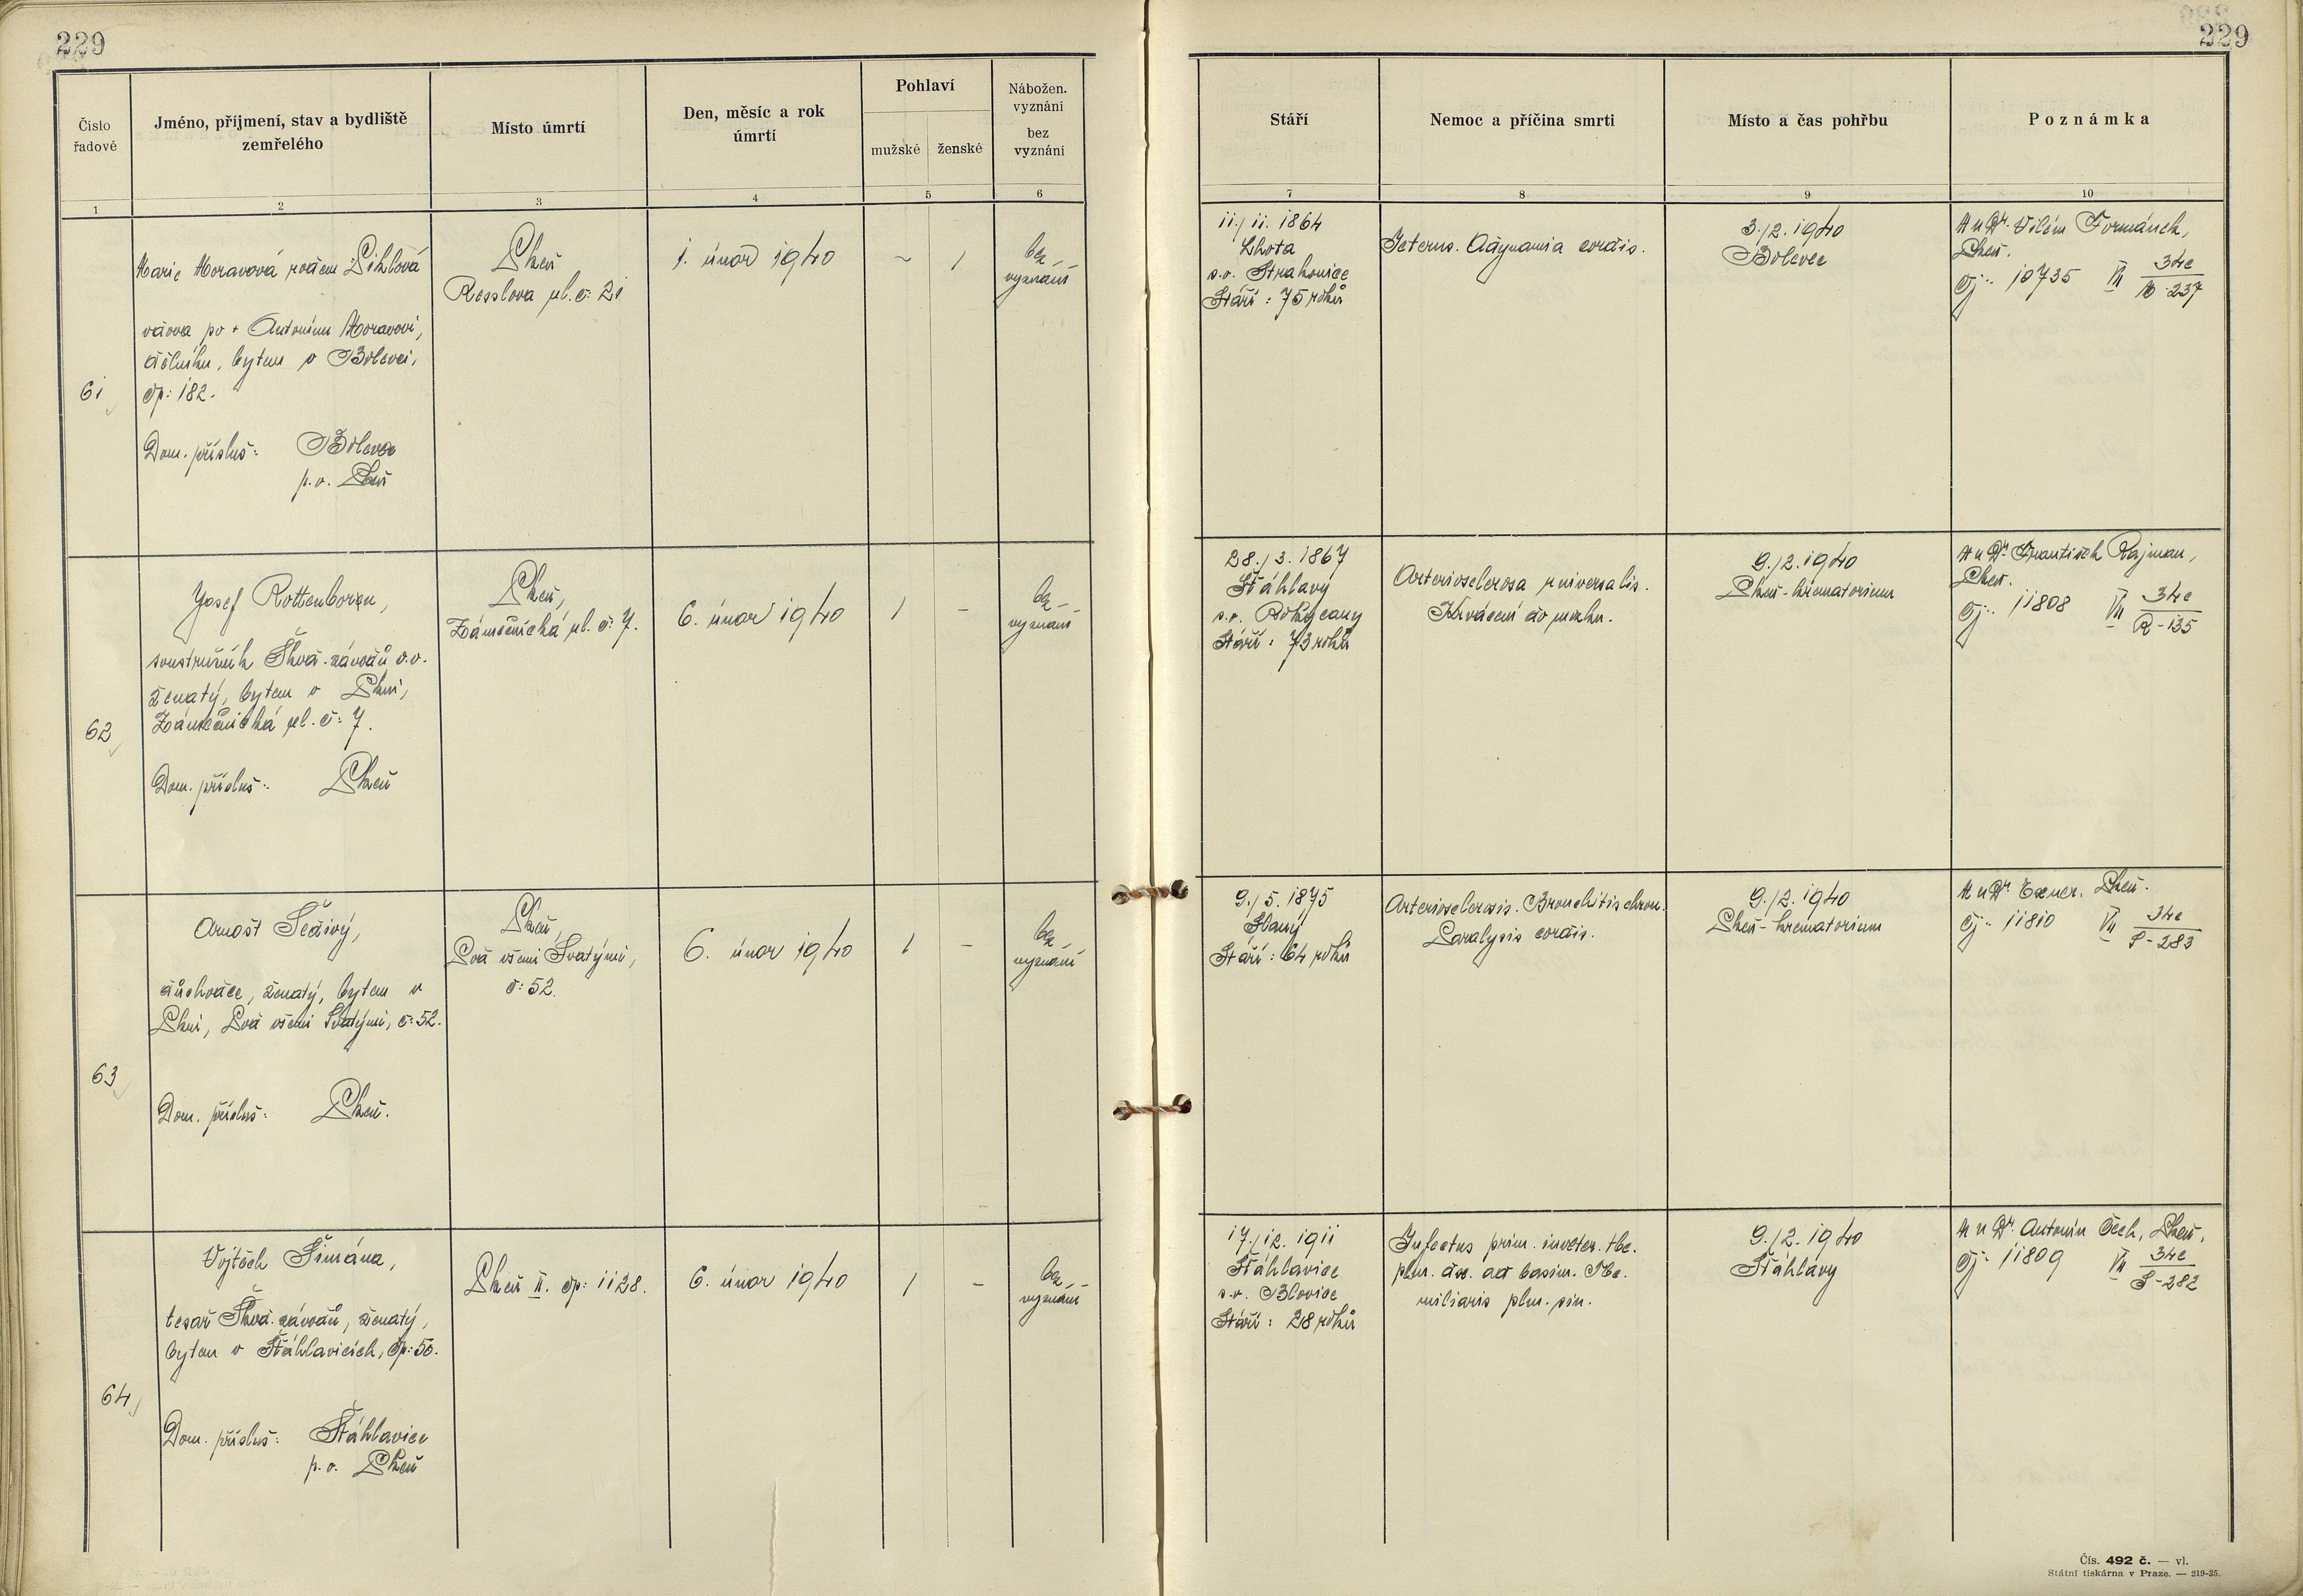 229
229
Číslo řadové
Jméno, příjmení, stav a bydliště zemřelého
Místo úmrtí
Den, měsíc a rok úmrtí
Pohlaví
mužské
ženské
Nábožen. vyznání
bez vyznání
Stáří
Nemoc a příčina smrti
Místo a čas pohřbu
Poznámka
1
2
3
4
5
6
7
8
9
10
61
Marie Moravová rozem
vdova po + Antonínu Moravovi,
dělníku, bytem v Bolevci,
čp: 182.
Dom. přísluš: Bolevec
p.o. Plzeň
Plzeň
Resslova ul. č: 21
1. únor 1940
~
1
bez
vyznání
11./11. 1864
Lhota
s.o. Strakonice
Stáří: 75 roků
Icterus. Adynamia cordis.
3./2. 1940
Bolevec
MuDr. Vilém Formánek,
Plzeň.
čj: 10735 VII 34e
M-237
62
Josef Rottenborn,
soustružník Škod. závodů v.v.
ženatý, bytem v Plzni,
Zámečnická ul. č: 7.
Dom. přísluš: Plzeň
Plzeň,
Zámečnická ul. č: 7.
6. únor 1940
1
–
bez
vyznání
28./3. 1867
Šťáhlavy
s.o. Rokycany
Stáří: 73 roků
Arteriosclerosa universalis.
Krvácení do mozku.
9./2. 1940
Plzeň-krematorium
MuDr. František Rajman,
Plzeň.
čj: 11808 VII 34e
R-135
63
Arnošt Šedivý,
důchodce, ženatý, bytem v
Plzni, Pod všemi Svatými, č: 52.
Dom. přísluš: Plzeň.
Plzeň,
Pod všemi Svatými,
č: 52.
6. únor 1940
1
–
bez
vyznání
9./5. 1875
Slaný
Stáří: 64 roků
Arteriosclerosis. Bronchitis chron.
Paralysis cordis.
9./2. 1940
Plzeň-krematorium
MuDr. Exner. Plzeň.
čj: 11810 VII 34e
S-283
64
Vojtěch Šimána,
tesař Škod. závodů, ženatý,
bytem v Šťáhlavicích, čp: 50.
Dom. přísluš: Šťáhlavice
p.o. Plzeň
Plzeň II. čp: 1128.
6. únor 1940
1
–
bez
vyznání
17./12. 1911
Šťáhlavice
s.o. Blovice
Stáří: 28 roků
Infectus prim. inveter. tbc.
plm. dx. ad basim. Tbc.
miliaris plm. sin.
9./2. 1940
Šťáhlavy
MuDr. Antonín Čech, Plzeň,
čj: 11809 VII 34e
S-282
Čís. 492 č. — vl.
Státní tiskárna v Praze. — 219-35.